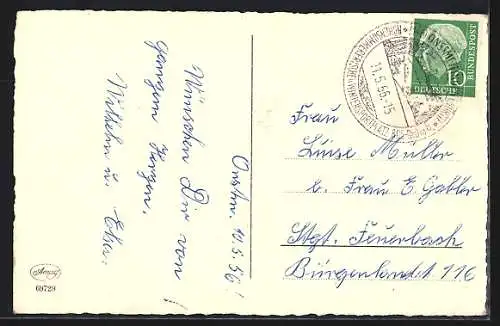 Wünschen Dir von
ganzem Herzen.
Wilhelm u.
10.5.56!
Frau
Luise Müller
b. Frau E. Gabler
Stgt. Feuerbach
Burgenlandstr. 116
11.5.56-15
10
DEUTSCHE
BUNDESPOST
68729